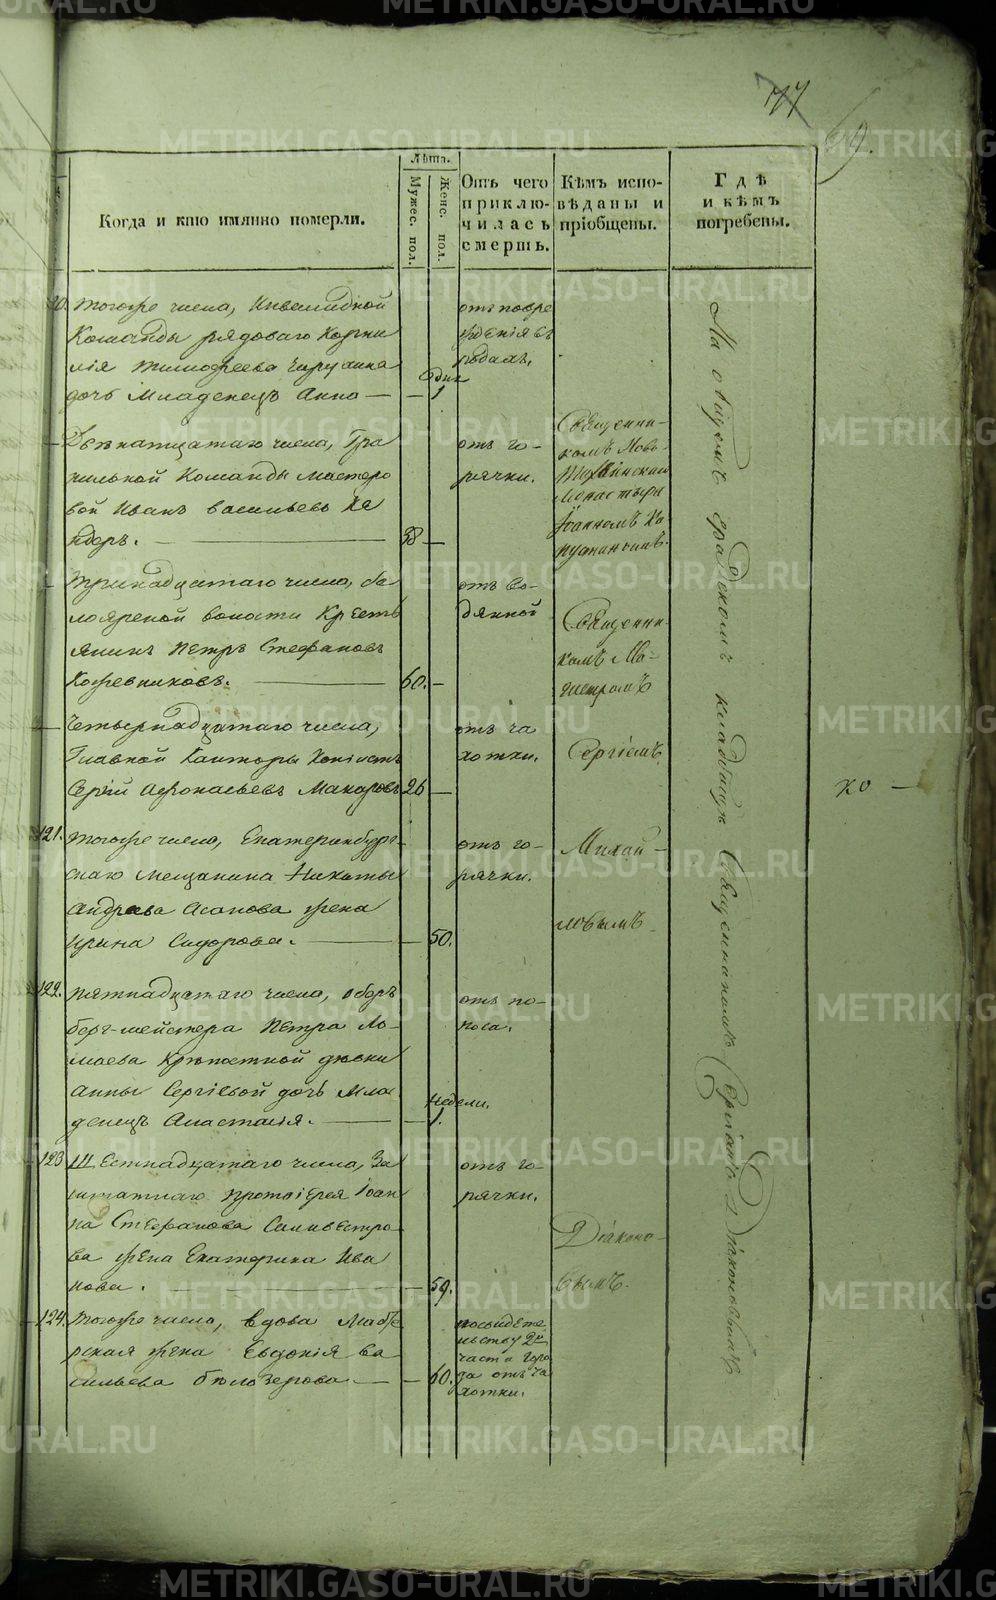 77
69.
Когда и кто имянно померли.
Лѣта.
Мужес. пол.
Женс. пол.
Отъ чего приклю-чилась смерть.
Кѣмъ испо-вѣданы и пріобщены.
Гдѣ и кѣмъ погребены.
тогоже числа, Инвалидной
Команды рядоваго Корни
лія Тимофеева
дочь младенецъ Анна — — дни 1
отъ повре
жденія въ
родахъ.
Двѣнатцатаго числа, Гра
нильной Команды мастеро
вой Иванъ Васильевъ Ке
ндеръ. — 58 —
отъ го-
рячки.
Священни-
комъ Ново-
Тихвинскаго
Монастыря
Іоанномъ Ка
пустинымъ.
тринадцатаго числа, Бе
лоярской волости Крестъ
янинъ Петръ Стефановъ
Кожевниковъ. — 60. —
отъ во-
дянной
Священни
комъ Ма-
гистромъ
Четырнадцатаго числа,
Главной Канторы Копіистъ
Сергій Афонасьевъ Макаровъ 26 —
отъ ча
хотки.
Сергіемъ
121. тогоже числа, Екатеринбург-
скаго мещанина Никиты
Андреева Асанова жена
Ирина Сидорова. — — 50.
отъ го-
рячки.
Михай-
ловымъ
122. пятнадцатаго числа, оберъ
берг-мейстера Петра Ло-
маева Крѣпостной дѣвки
Анны Сергіевой дочь Мла
денецъ Анастасія. — — недели. 1.
отъ по-
носа.
123 Шестнадцатаго числа, За
штатнаго протоіерея Іоан
на Стефанова Сильвестро
ва жена Екатерина Ива
нова. — — 59.
отъ го-
рячки.
Діаконо-
вымъ.
124. тогоже числа, вдова
рская жена Евдокія Ва
сильева Белозерова — — 60.
посвидете
льству 2й
части горо
да отъ ча
хотки.
На общемъ градскомъ кладбище Священникомъ Сергіемъ Діаконовымъ
ко —